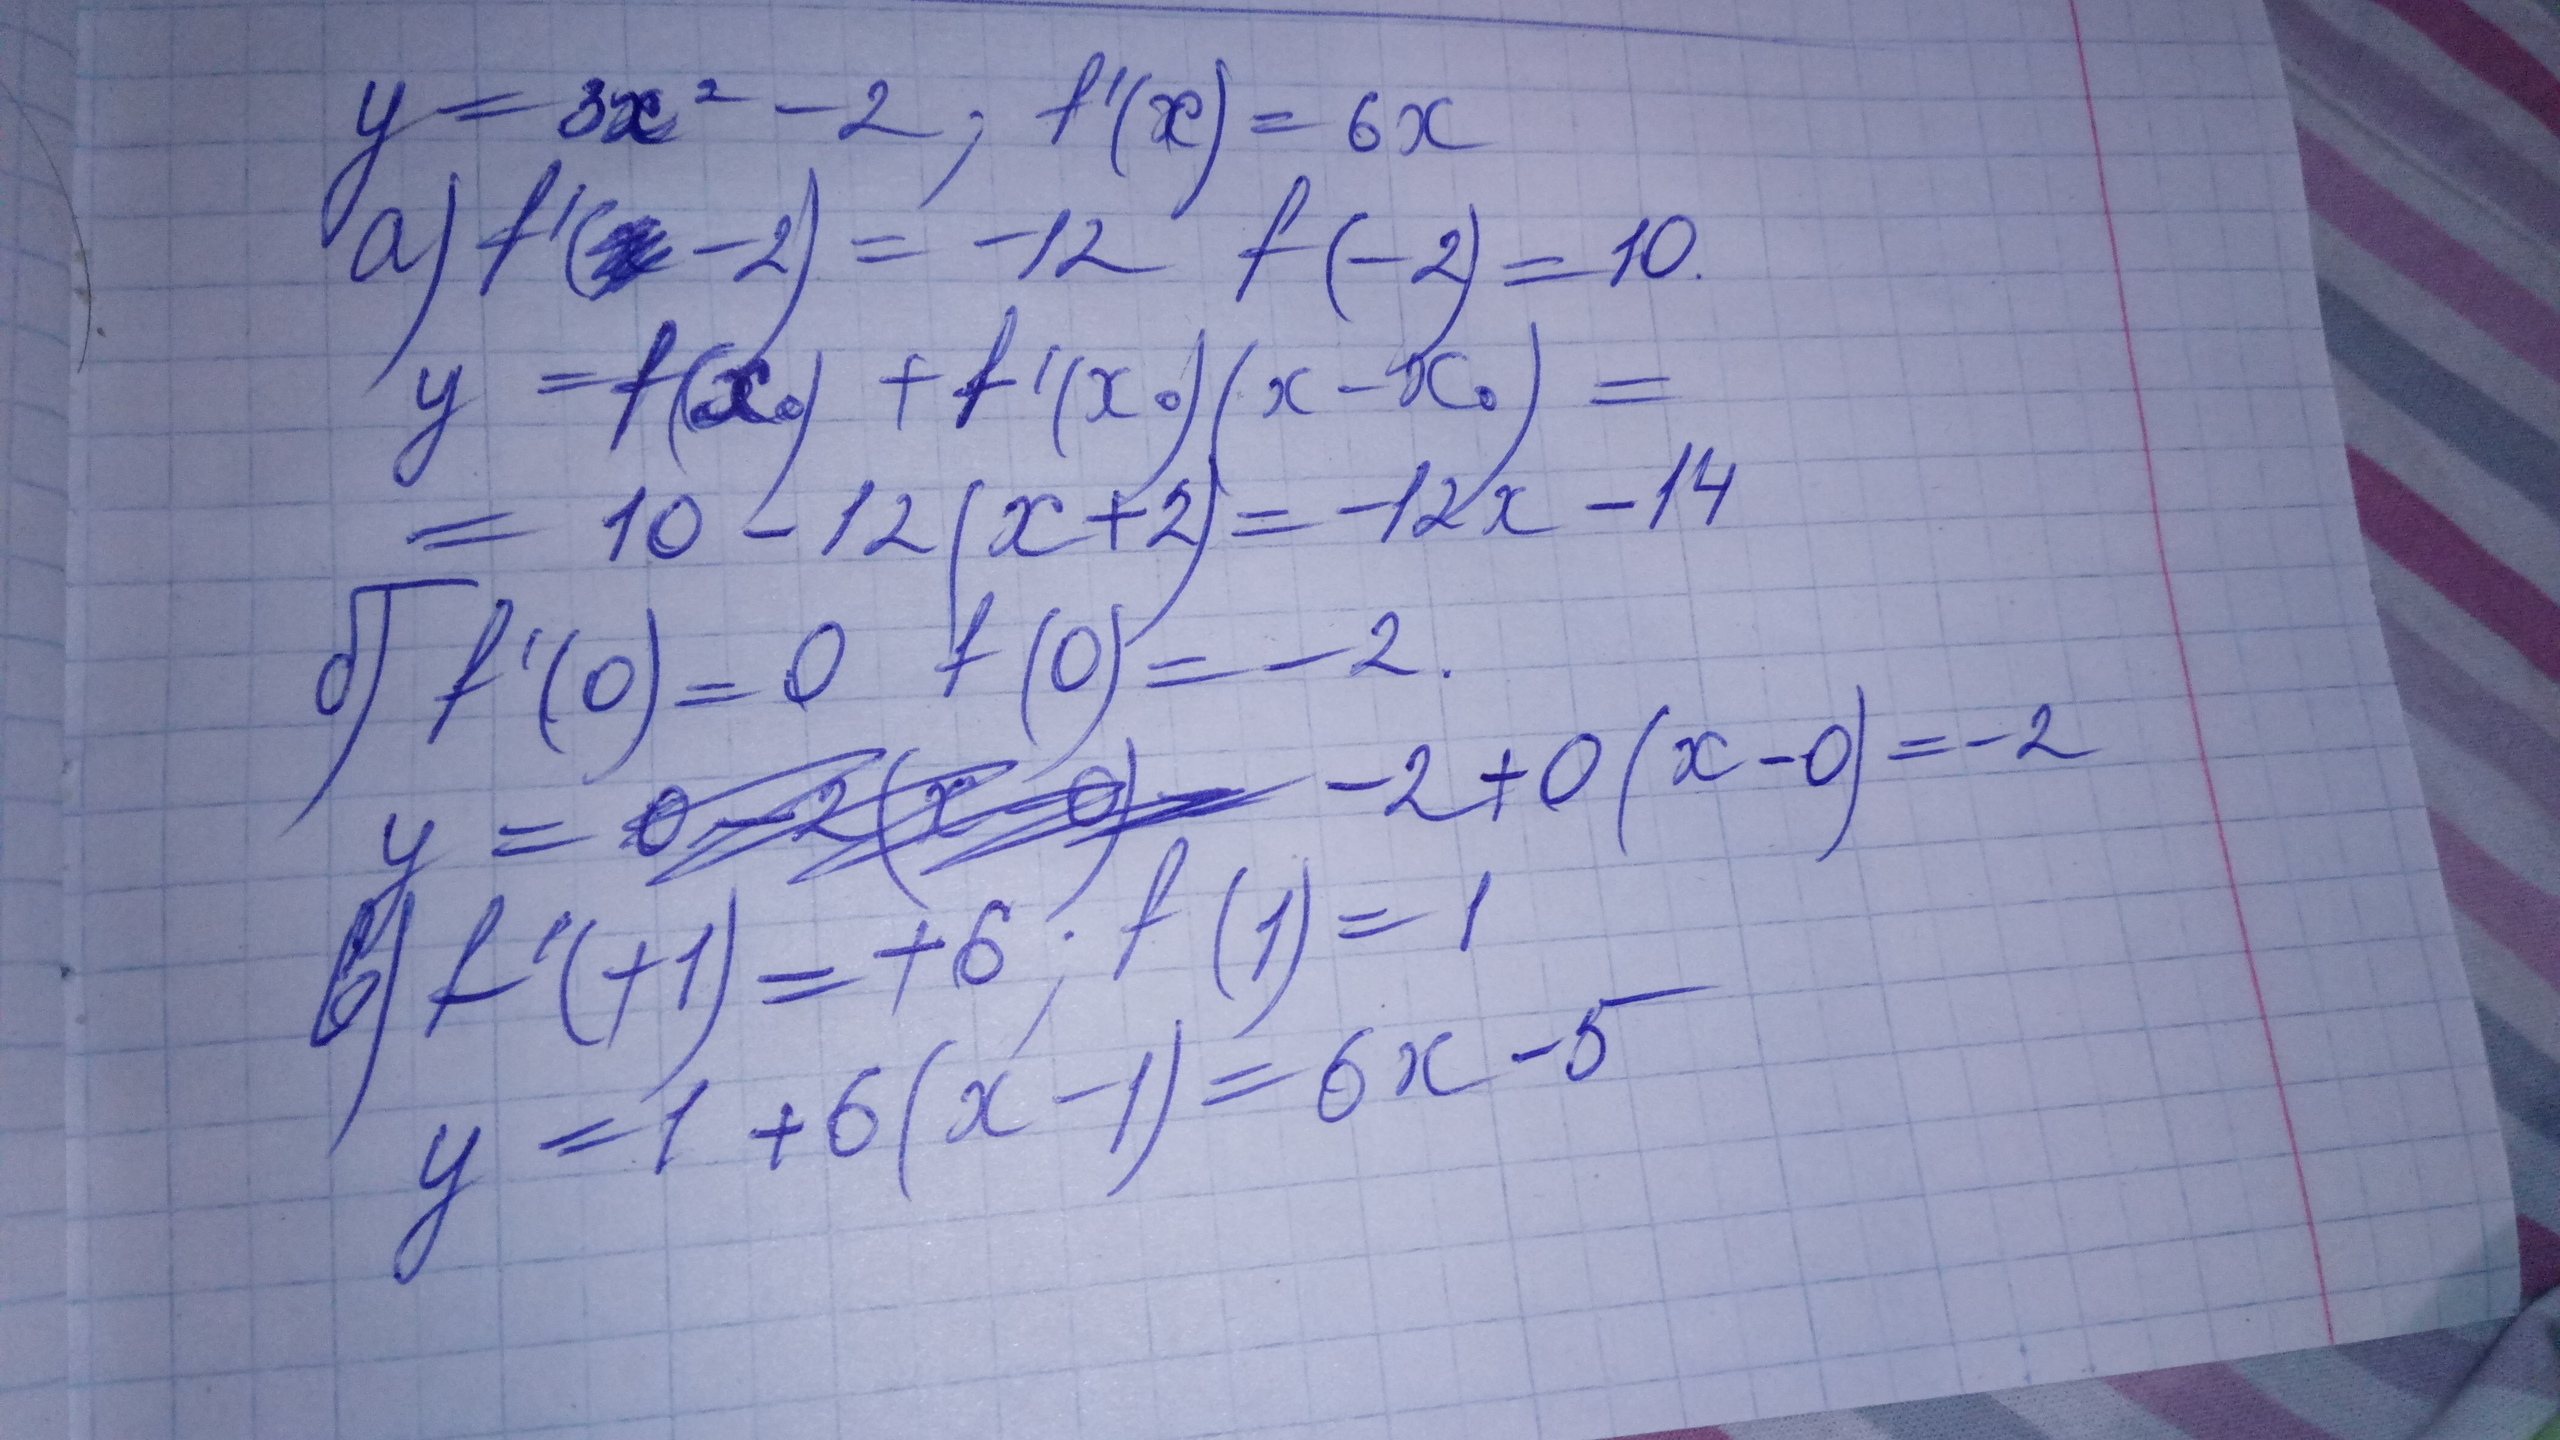 y = 3x² - 2 ; f'(x) = 6x
а) f'(-2) = -12 f(-2) = 10.
y = f(x₀) + f'(x₀)(x - x₀) =
= 10 - 12(x+2) = -12x - 14
б) f'(0) = 0 f(0) = -2.
y = -2+0(x-0) = -2
в) f'(+1) = +6 ; f(1) = 1
y = 1 + 6(x - 1) = 6x - 5